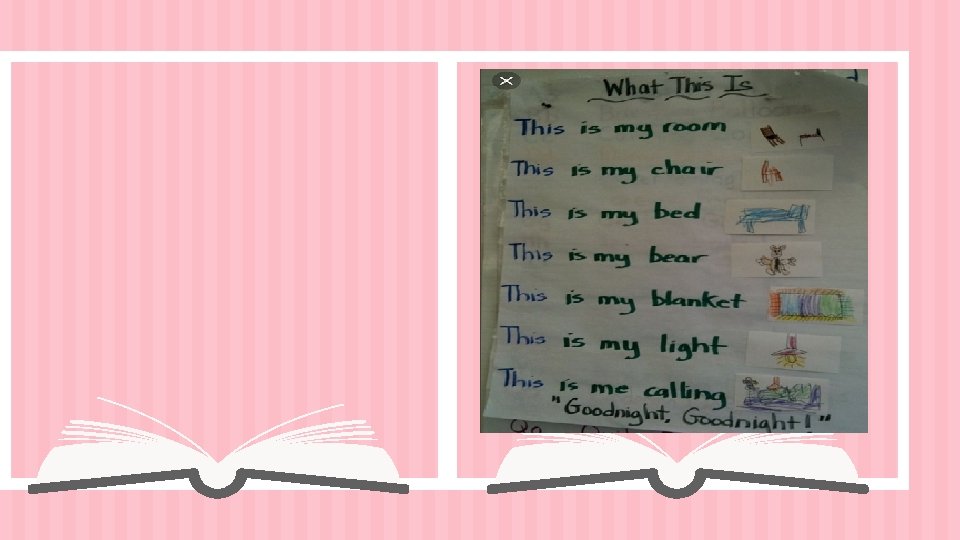 What This Is
This is my room
This is my chair
This is my bed
This is my bear
This is my blanket
This is my light
This is me calling
"Goodnight, Goodnight!"